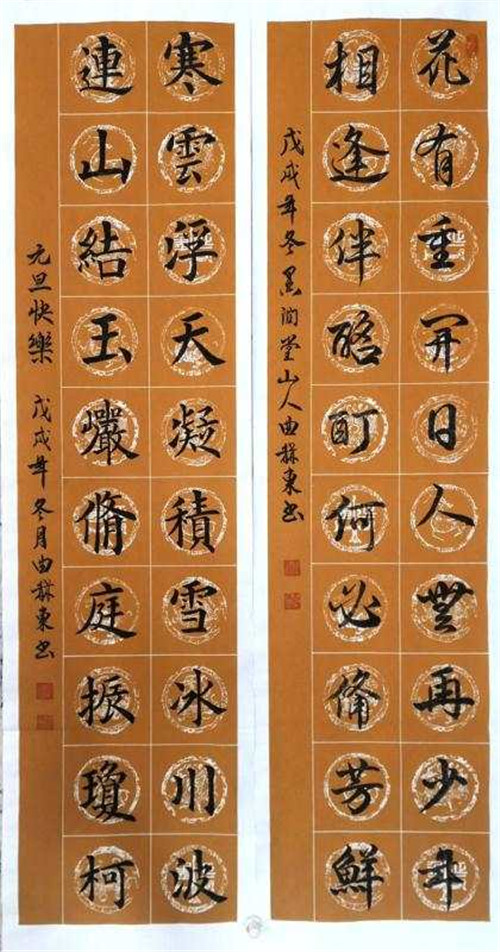 花有重開日人無再少年
相逢伴酩酊何必備芳鮮
戊戌年冬墨润堂山人由東书
寒雲浮天凝積雪冰川波
連山結玉巖脩庭振瓊柯
元旦快樂 戊戌年冬月由東书